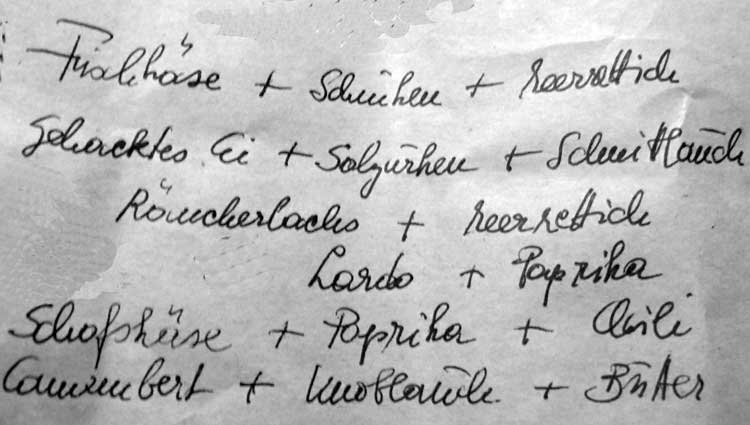 Frischkäse + Schinken + Meerrettich
Gehacktes Ei + Salzgurken + Schnittlauch
Räucherlachs + Meerrettich
Lardo + Paprika
Schafskäse + Paprika + Chili
Camembert + Knoblauch + Butter